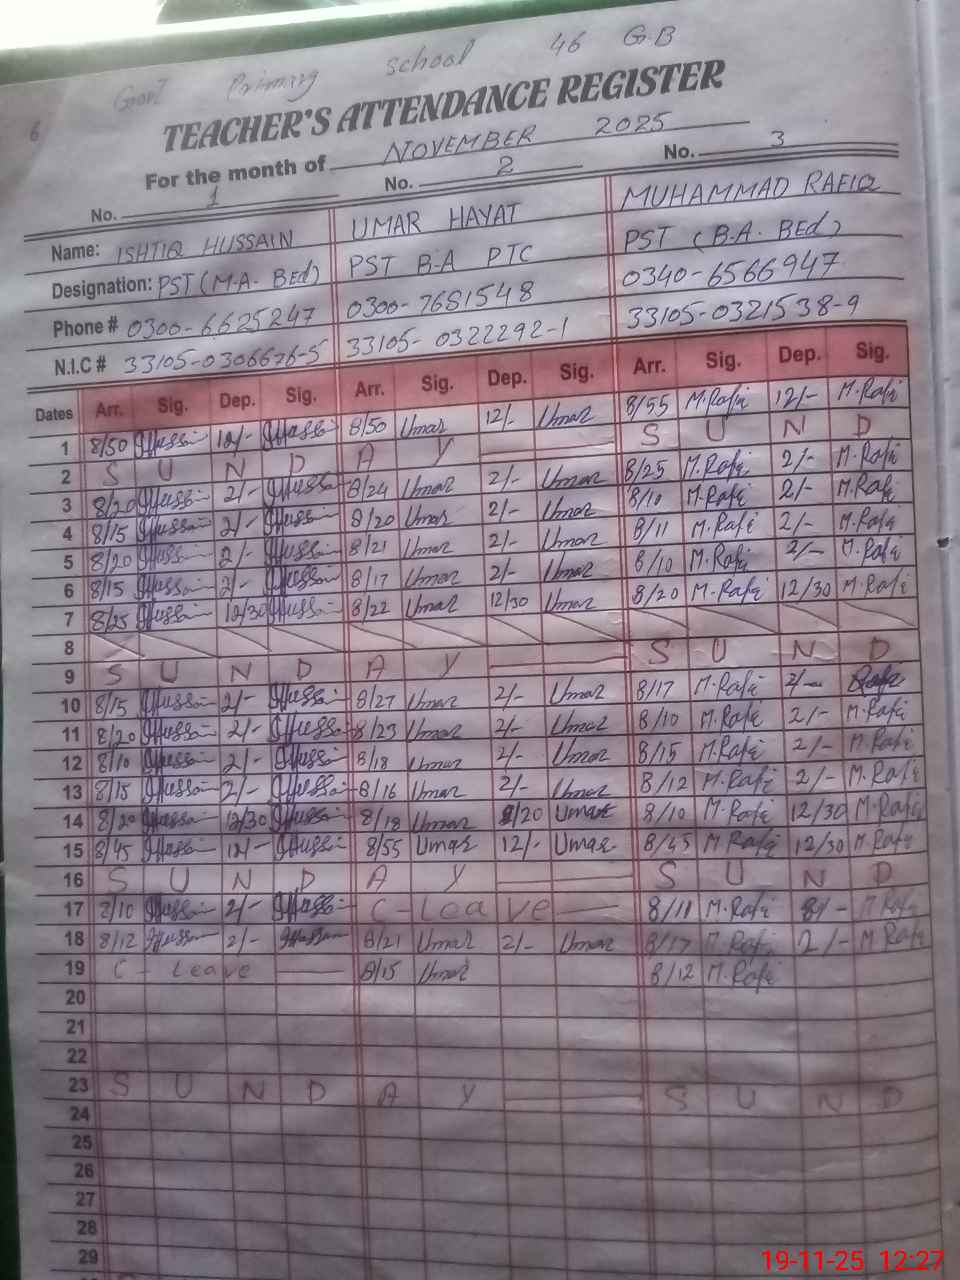 Govt Primary school 46 G.B
6
TEACHER'S ATTENDANCE REGISTER
For the month of NOVEMBER 2025
No. 1 No. 2 No. 3
Name: ISHTIQ HUSSAIN UMAR HAYAT MUHAMMAD RAFIQ
Designation: PST (M.A. BEd) PST B.A PTC PST (B.A. BEd)
Phone # 0300-6625247 0300-7681548 0340-6566947
N.I.C # 33105-0306676-5 33105-0322292-1 33105-0321538-9
Dates Arr. Sig. Dep. Sig. Arr. Sig. Dep. Sig. Arr. Sig. Dep. Sig.
1 8/50 IHussain 12/- IHussain 8/50 Umar 12/- Umar 8/55 M.Rafi 12/- M.Rafi
2 S U N D A Y S U N D
3 8/20 IHussain 2/- IHussain 8/24 Umar 2/- Umar 8/25 M.Rafi 2/- M.Rafi
4 8/15 IHussain 2/- IHussain 8/20 Umar 2/- Umar 8/10 M.Rafi 2/- M.Rafi
5 8/20 IHussain 2/- IHussain 8/21 Umar 2/- Umar 8/11 M.Rafi 2/- M.Rafi
6 8/15 IHussain 2/- IHussain 8/17 Umar 2/- Umar 8/10 M.Rafi 2/- M.Rafi
7 8/25 IHussain 12/30 IHussain 8/22 Umar 12/30 Umar 8/20 M.Rafi 12/30 M.Rafi
8
9 S U N D A Y S U N D
10 8/15 IHussain 2/- IHussain 8/27 Umar 2/- Umar 8/17 M.Rafi 2/- Rafi
11 8/20 IHussain 2/- IHussain 8/23 Umar 2/- Umar 8/10 M.Rafi 2/- M.Rafi
12 8/10 IHussain 2/- IHussain 8/18 Umar 2/- Umar 8/15 M.Rafi 2/- M.Rafi
13 8/15 IHussain 2/- IHussain 8/16 Umar 2/- Umar 8/12 M.Rafi 2/- M.Rafi
14 8/20 IHussain 12/30 IHussain 8/18 Umar /20 Umar 8/10 M.Rafi 12/30 M.Rafi
15 8/45 IHussain 12/- IHussain 8/55 Umar 12/- Umar 8/45 M.Rafi 12/30 M.Rafi
16 S U N D A Y S U N D
17 8/10 IHussain 2/- IHussain C-Leave 8/11 M.Rafi M.Rafi
18 8/12 IHussain 2/- IHussain 8/21 Umar 2/- Umar 8/17 M.Rafi 2/- M.Rafi
19 C - Leave 8/15 Umar 8/12 M.Rafi
20
21
22
23 S U N D A Y S U N D
24
25
26
27
28
29
19-11-25 12:27